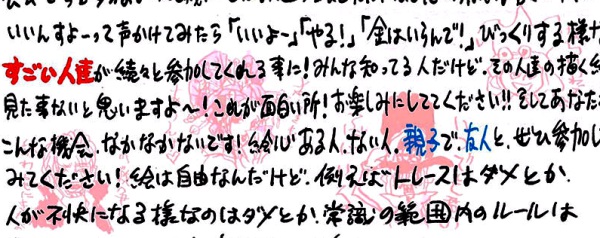 いいんすよーって声かけてみたら「いいよ〜」「やる！」「金はいらんで！」びっくりする様な
すごい人達が続々と参加してくれる事に！みんな知ってる人だけど、その人達の描く絵
見た事ないと思いますよ〜！これが面白い所！お楽しみにしててください!!そしてあなた
こんな機会、なかなかないです！絵心ある人、ない人、親子で、友人と、ぜひ参加し
みてください！絵は自由なんだけど、例えばトレースはダメとか、
人が不快になる様なのはダメとか、常識の範囲内のルールは